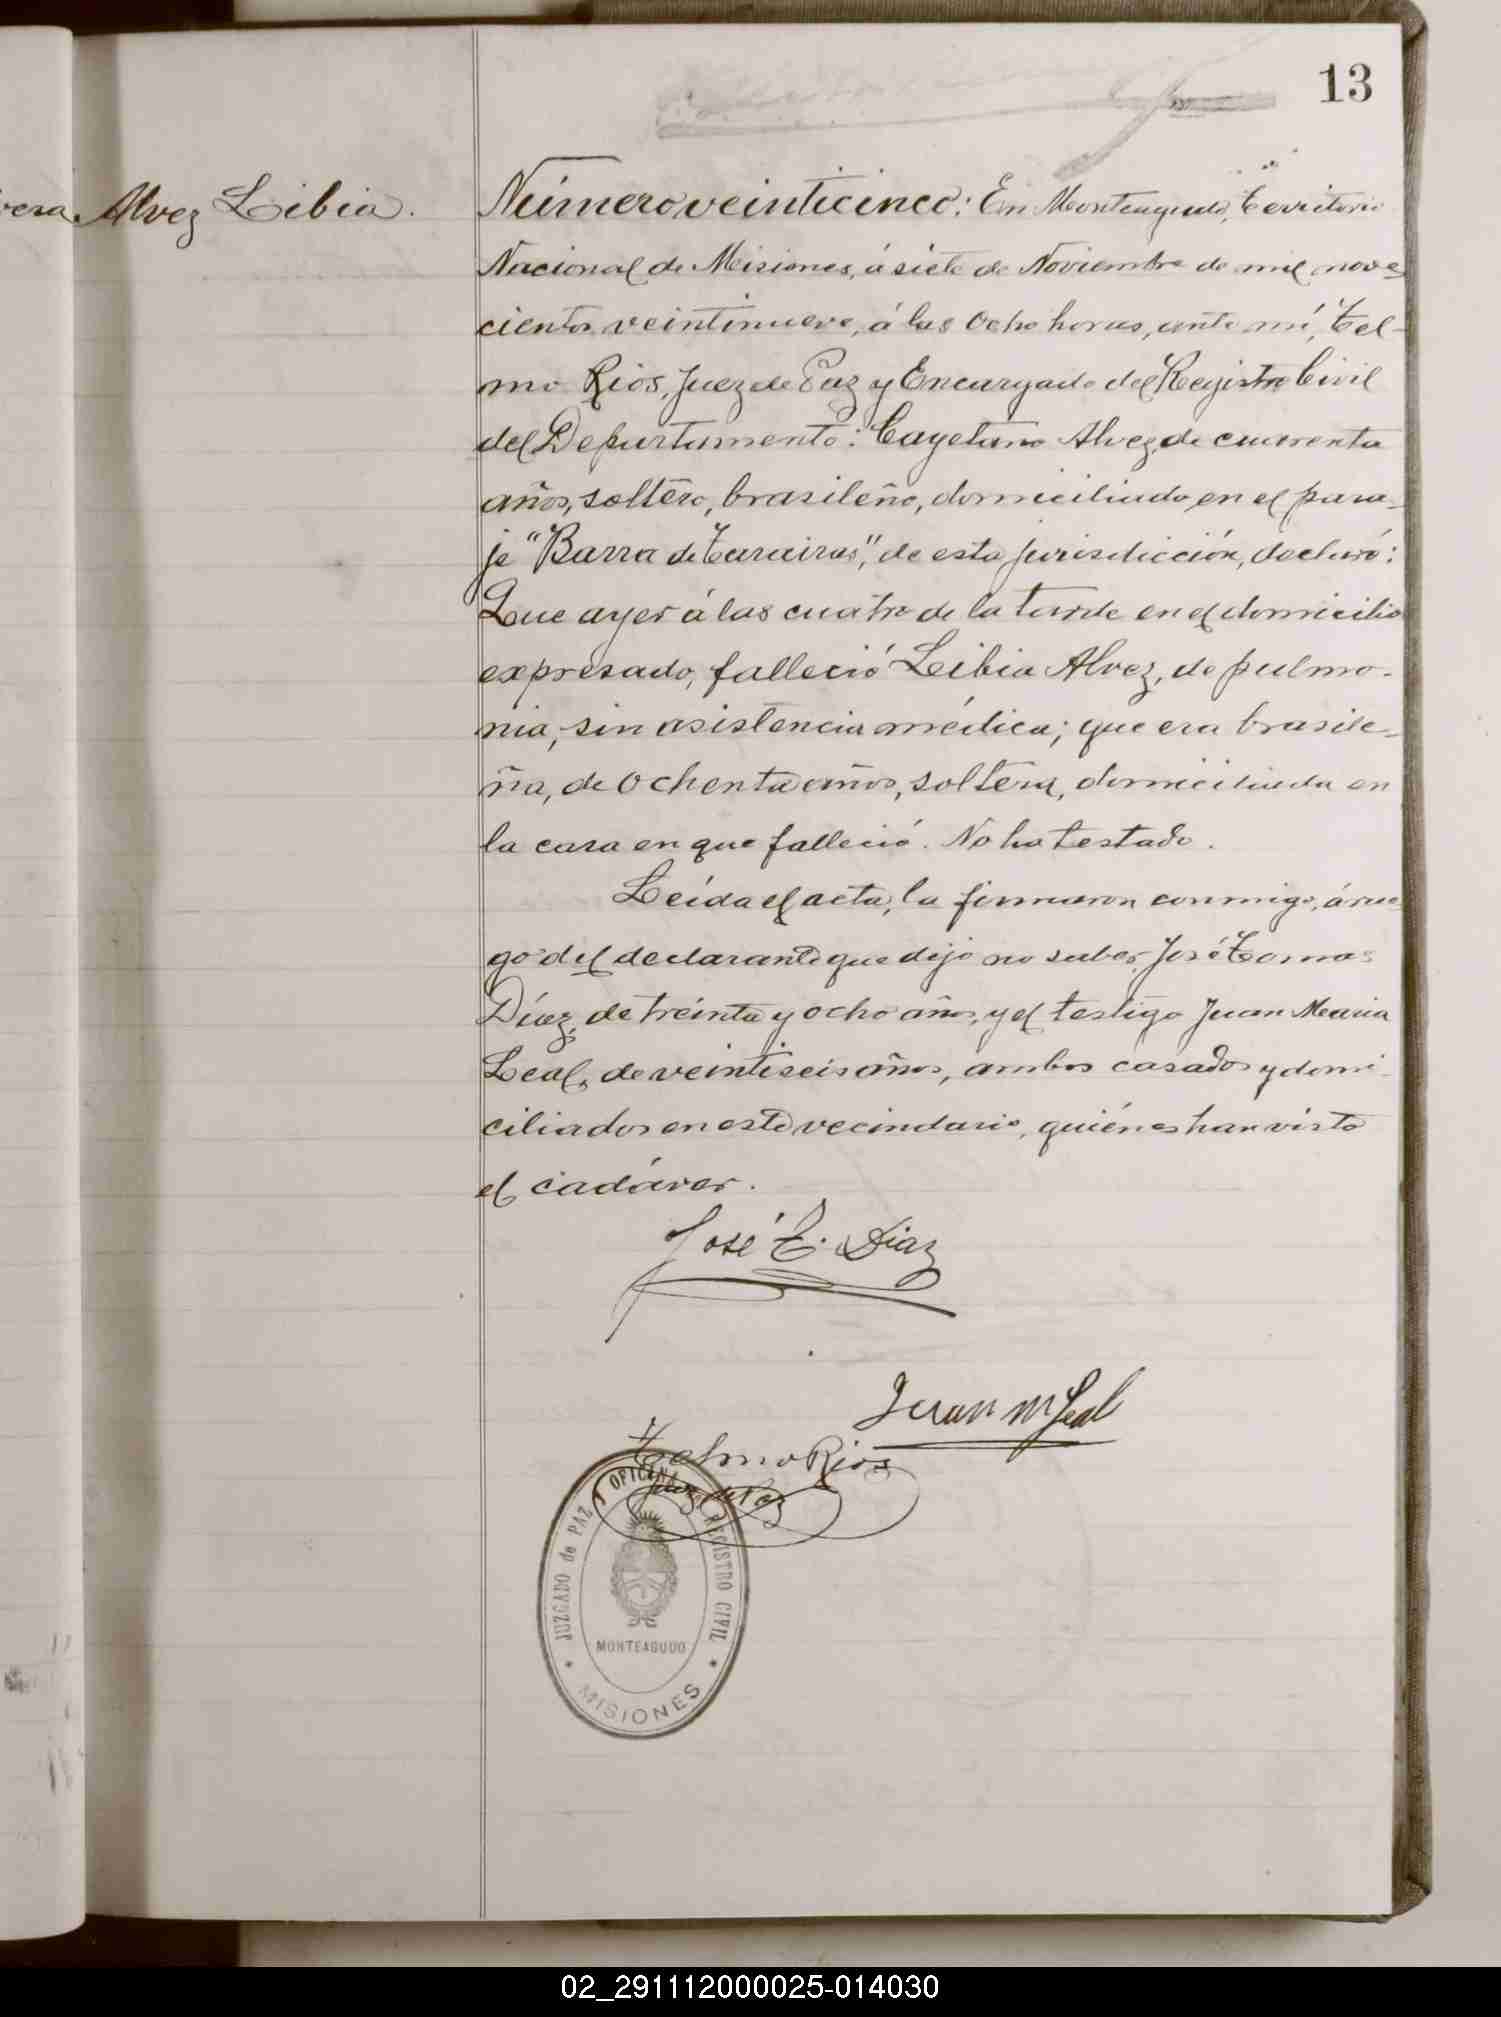 13
Alvez Libia.
Número veinticinco: En Monteagudo, Territorio
Nacional de Misiones, á siete de Noviembre de mil nove-
cientos veintinueve, á las ocho horas, ante mí, Tel-
mo Rios, Juez de Paz y Encargado del Registro Civil
del Departamento: Cayetano Alvez, de cuarenta
años, soltero, brasileño, domiciliado en el para-
je "Barra de Tarairas", de esta jurisdicción, declaró:
Que ayer á las cuatro de la tarde en el domicilio
expresado, falleció Leibia Alvez, de pulmo-
nia, sin asistencia médica; que era brasile-
ña, de ochenta años, soltera, domiciliada en
la casa en que falleció. No ha testado.
Leída el acta, la firmaron conmigo, á rue-
go del declarante que dijo no saber, José Tomas
Díaz, de treinta y ocho años, y el testigo Juan Maria
Leal, de veintiseis años, ambos casados y domi-
ciliados en este vecindario, quiénes han visto
el cadáver.
José T. Diaz
Juan M Leal
Telmo Rios
Juez de Paz
JUZGADO de PAZ Y OFICINA REGISTRO CIVIL
MONTEAGUDO
MISIONES
02_291112000025-014030